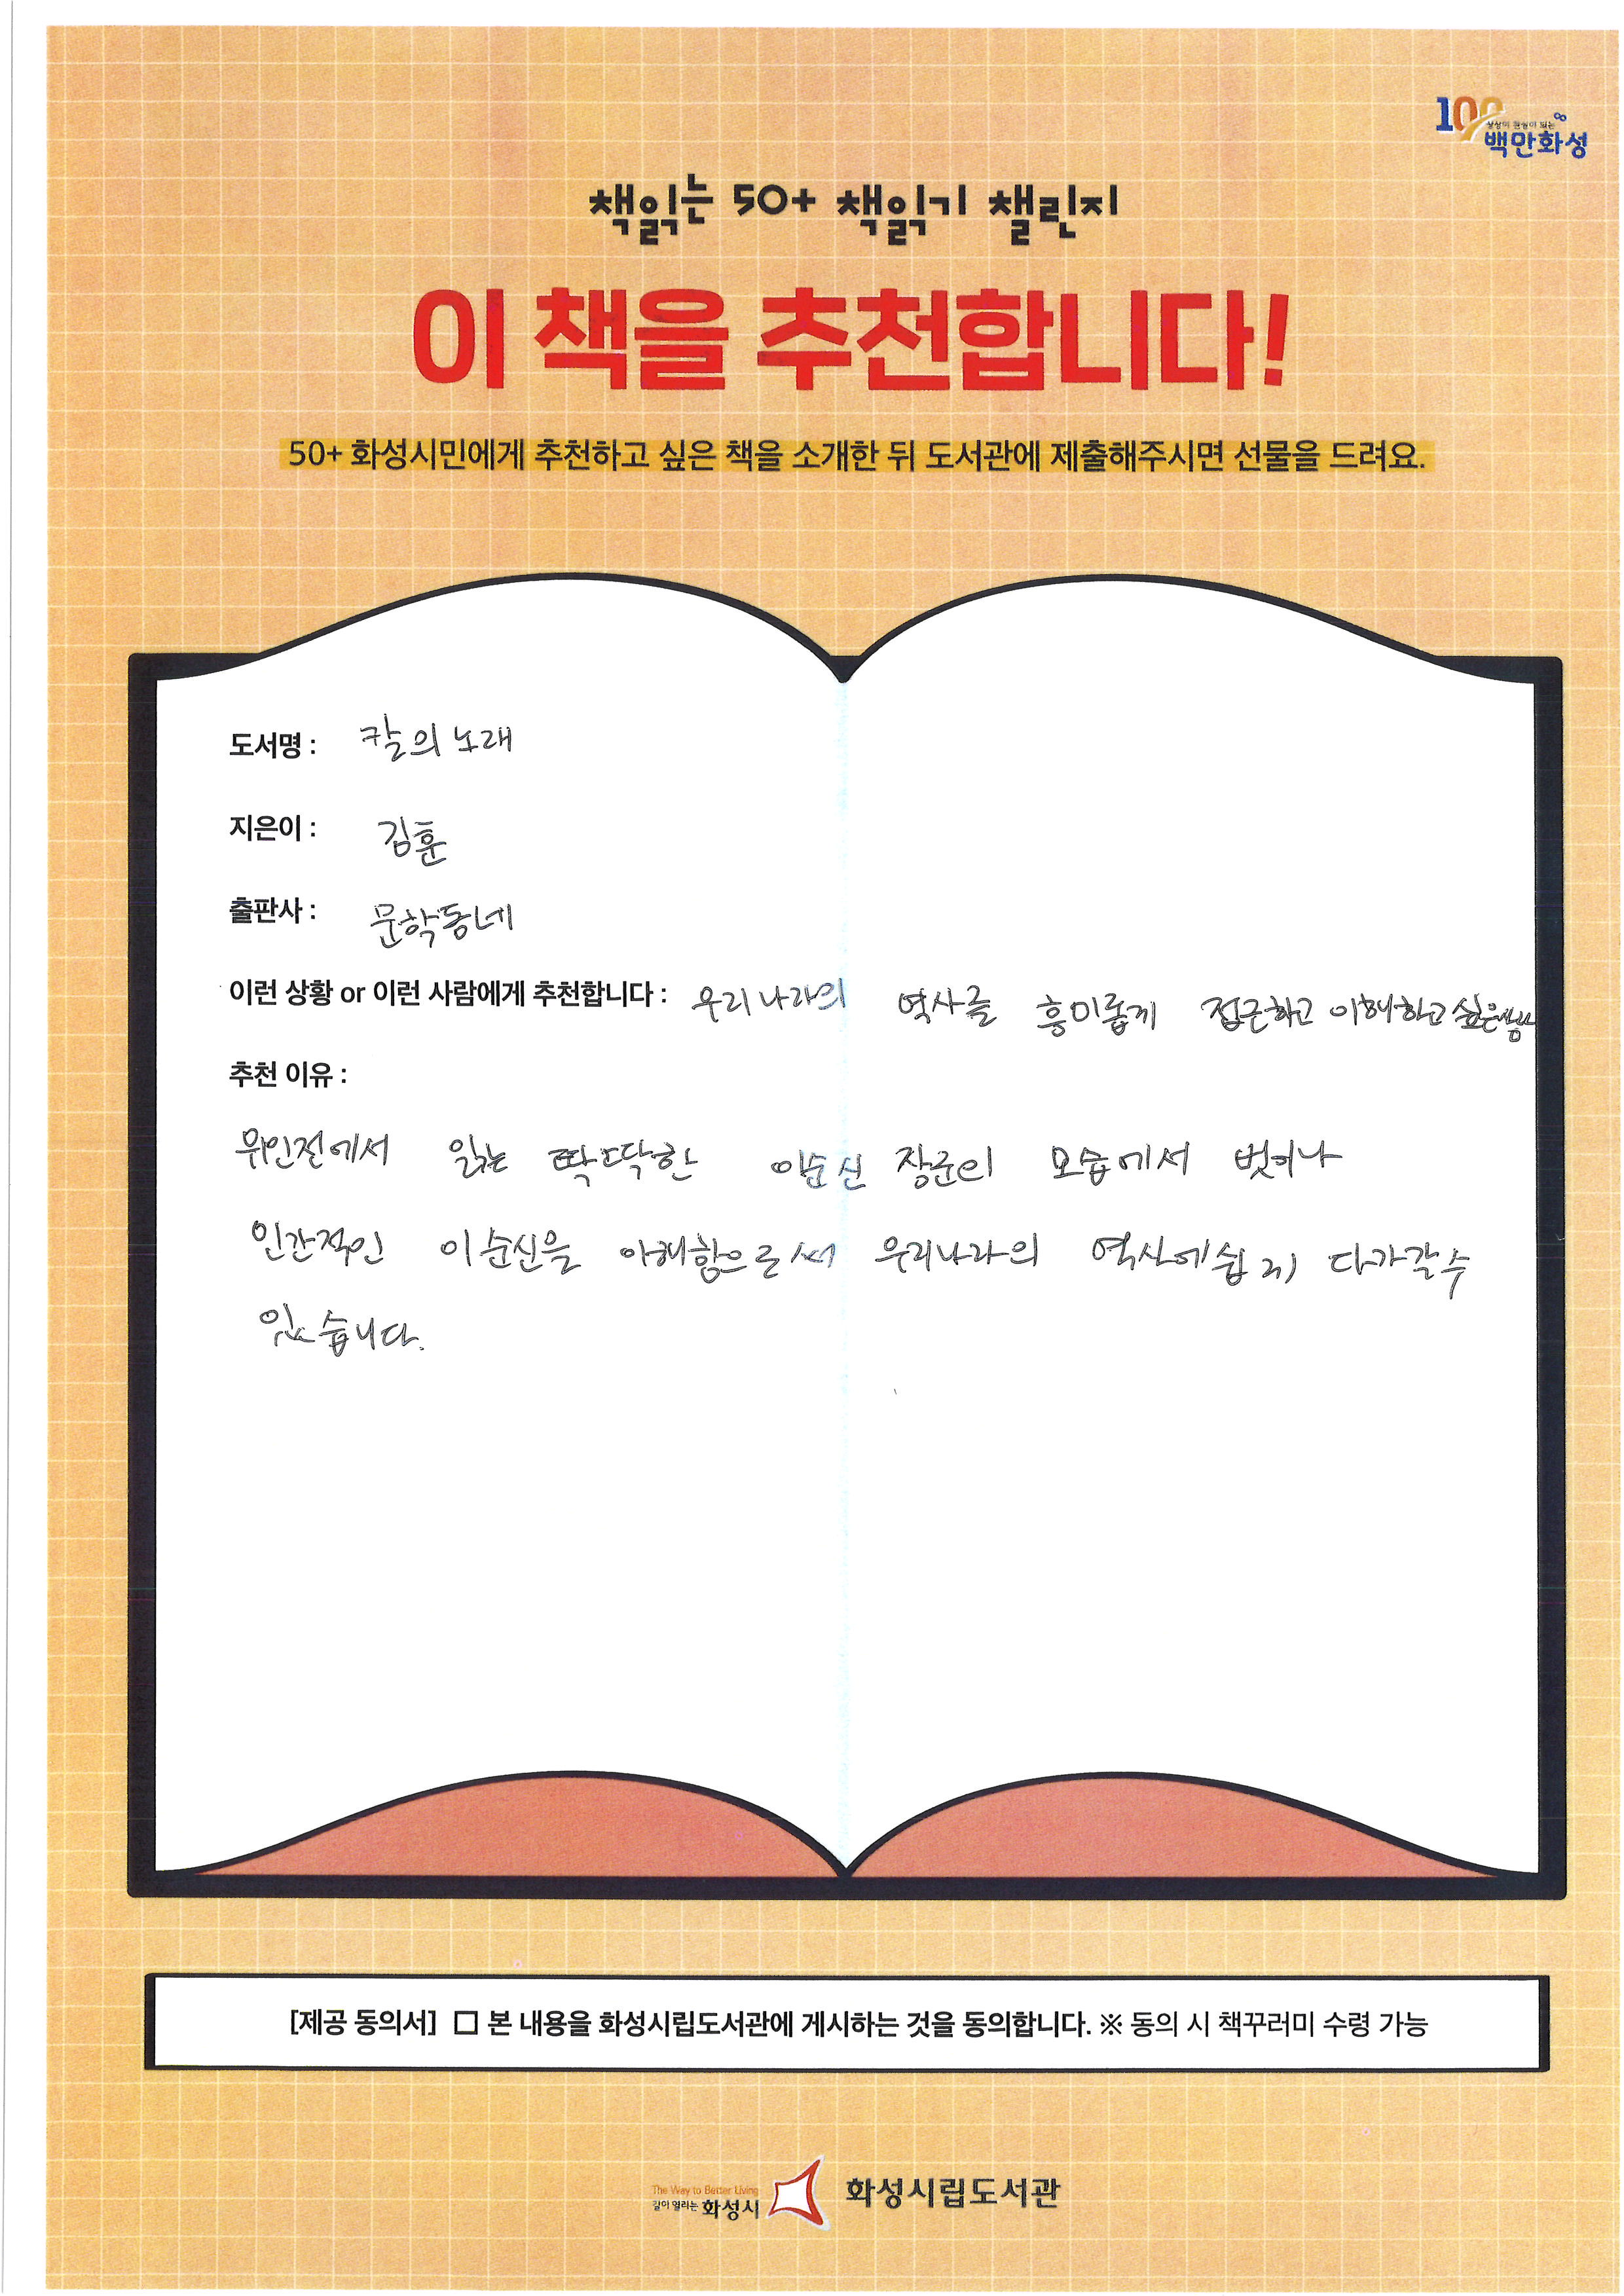 100
상상이 현실이 되는
백만화성
책읽는 50+ 책읽기 챌린지
이 책을 추천합니다!
50+ 화성시민에게 추천하고 싶은 책을 소개한 뒤 도서관에 제출해주시면 선물을 드려요.
도서명 : 칼의 노래
지은이 : 김훈
출판사 : 문학동네
이런 상황 or 이런 사람에게 추천합니다 : 우리나라의 역사를 흥미롭게 접근하고 이해하고 싶은사람
추천 이유 :
위인전에서 읽는 딱딱한 이순신 장군의 모습에서 벗어나
인간적인 이순신을 이해함으로써 우리나라의 역사에 쉽게 다가갈 수
있습니다.
[제공 동의서] □ 본 내용을 화성시립도서관에 게시하는 것을 동의합니다. ※ 동의 시 책꾸러미 수령 가능
The Way to Better Living
길이 열리는 화성시
화성시립도서관